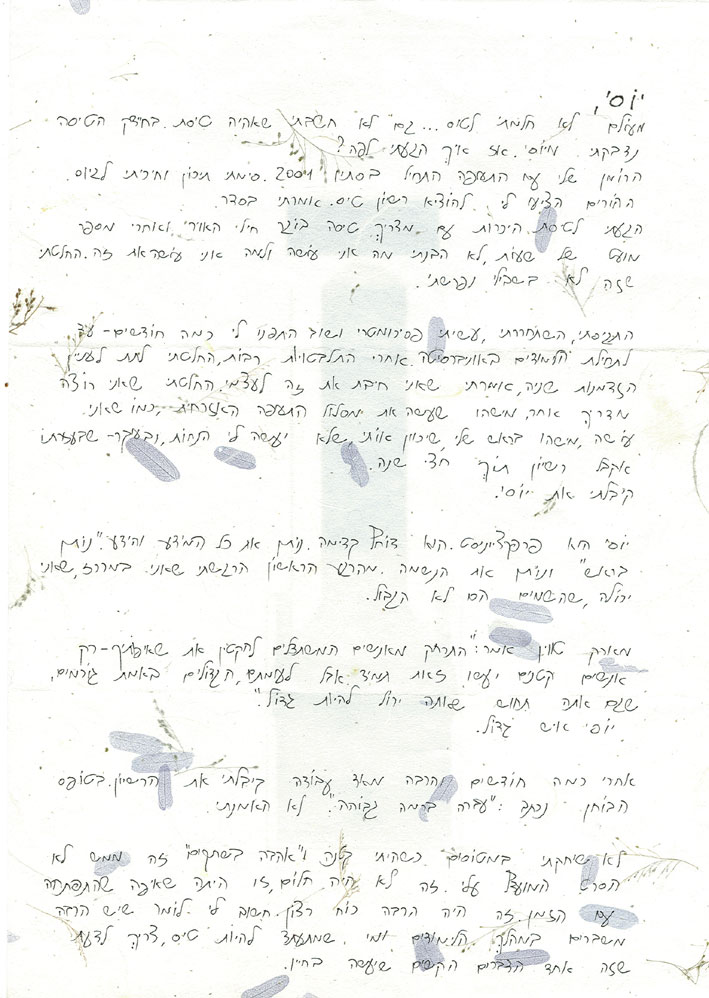 יוסי,
מעולם לא חלמתי לטוס... גם לא חשבתי שאהיה טייסת. בחידק הטיסה
נדבקתי מיוסי. אז איך הגעתי לפה?
הרומן שלי עם התעופה התחיל בסתיו 2001. סיימתי תיכון וחיכיתי לגיוס.
ההורים הציעו לי להוציא רשיון טיס. אמרתי בסדר.
הגעתי לטיסת היכרות עם מדריך טיסה בוגר חיל האויר ואחרי מספר
מועט של שעות, לא הבנתי מה אני עושה ולמה אני עושה את זה. החלטתי
שזה לא בשבילי ופרשתי.
התגייסתי, השתחררתי, עשיתי פסיכומטרי ושוב התפנו לי כמה חודשים - עד
לתחילת הלימודים באוניברסיטה. אחרי התלבטויות רבות, החלטתי לתת לעניין
הזדמנות שניה, אמרתי שאני חייבת את זה לעצמי. החלטתי שאני רוצה
מדריך אחר, מישהו שעשה את מסלול התעופה האזרחית, כמו שאני
עושה, מישהו בראש שלי, שיכוון אותי, שלא יעשה לי הנחות, ובעיקר - שבעזרתו
אקבל רשיון תוך חצי שנה.
קיבלתי את יוסי.
יוסי הוא פרפקציוניסט. הוא דוחף קדימה. נותן את כל המידע והידע. "נותן
בראש" ונותן את הנשמה. מהרגע הראשון הרגשתי שאני במרכז, שאני
יכולה, שהשמים הם לא הגבול.
מארק טווין אמר: "התרחק מאנשים המשתדלים להקטין את שאיפותיך - רק
אנשים קטנים יעשו זאת תמיד. אבל לעומתם, הגדולים באמת גורמים,
שגם אתה תחוש שאתה יכול להיות גדול."
יוסי איש גדול.
אחרי כמה חודשים והרבה מאד עבודה קיבלתי את הרישיון. בטופס
הבוחן נכתב: "עברה ברמה גבוהה". לא האמנתי.
לא שיחקתי במטוסים כשהייתי קטנה ו"אהבה בשחקים" זה ממש לא
הסרט המועדף עלי. זה לא היה חלום, זו היתה שאיפה שהתפתחה
עם הזמן. זה היה הרבה כוח רצון. חשוב לי לומר שיש הרבה
משברים במהלך הלימודים ומי שמתעתד להיות טיס, צריך לדעת
שזה אחד הדברים הקשים שיעשה בחייו.